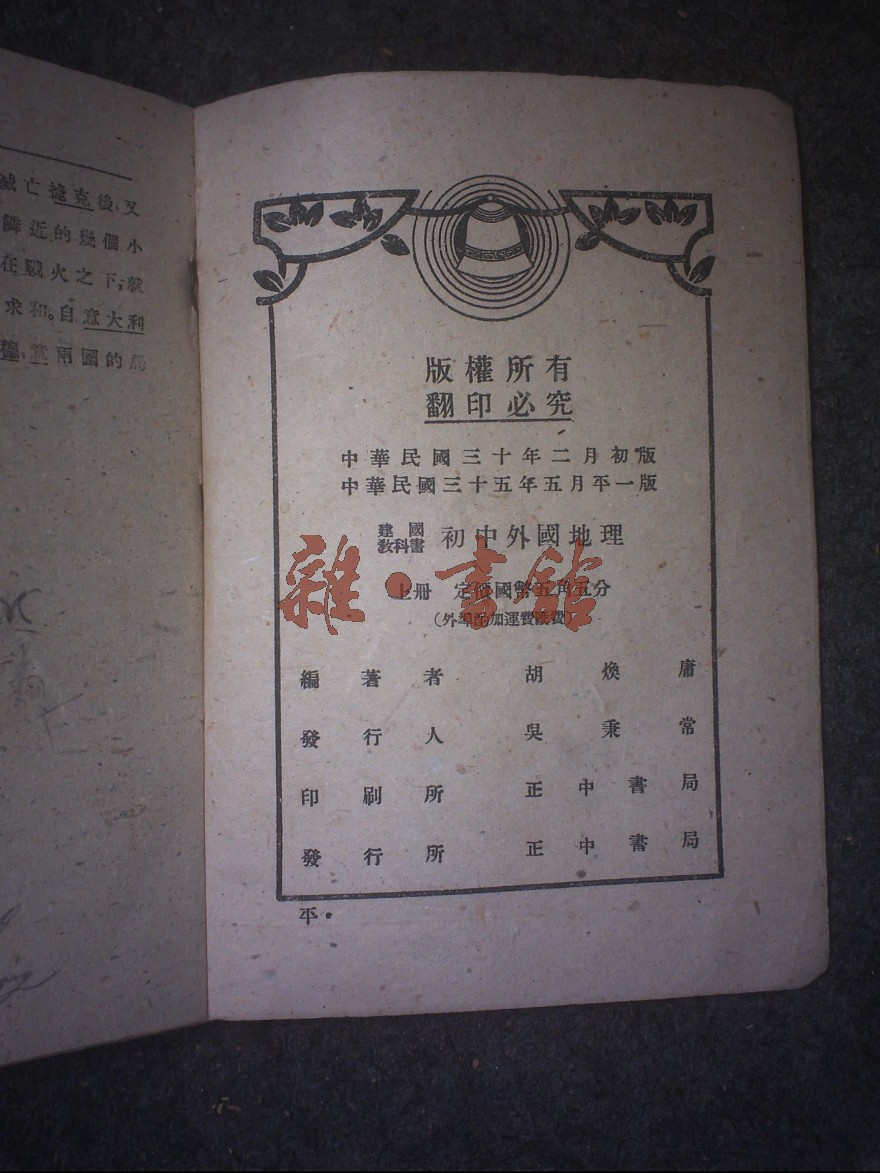 滅亡捷克後,又
鄰近的幾個小
在戰火之下;
求和。自意大利
意兩國的
版權所有
翻印必究
中華民國三十年二月初版
中華民國三十五年五月平一版
建國
教科書 初中外國地理
上冊 定價國幣五角五分
(外埠酌加運費匯費)
雜·書館
編著者 胡煥庸
發行人 吳秉常
印刷所 正中書局
發行所 正中書局
平。